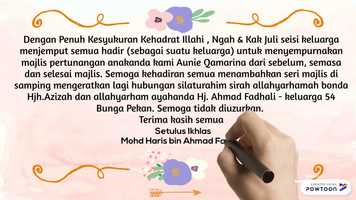 Dengan Penuh Kesyukuran Kehadrat Illahi , Ngah & Kak Juli seisi keluarga
menjemput semua hadir (sebagai suatu keluarga) untuk menyempurnakan
majlis pertunangan anakanda kami Aunie Qamarina dari sebelum, semasa
dan selesai majlis. Semoga kehadiran semua menambahkan seri majlis di
samping mengeratkan lagi hubungan silaturahim sirah allahyarhamah bonda
Hjh.Azizah dan allahyarham ayahanda Hj. Ahmad Fadhali - keluarga 54
Bunga Pekan. Semoga tidak diuzurkan.
Terima kasih semua
Setulus Ikhlas
Mohd Haris bin Ahmad Fa
POWTOON